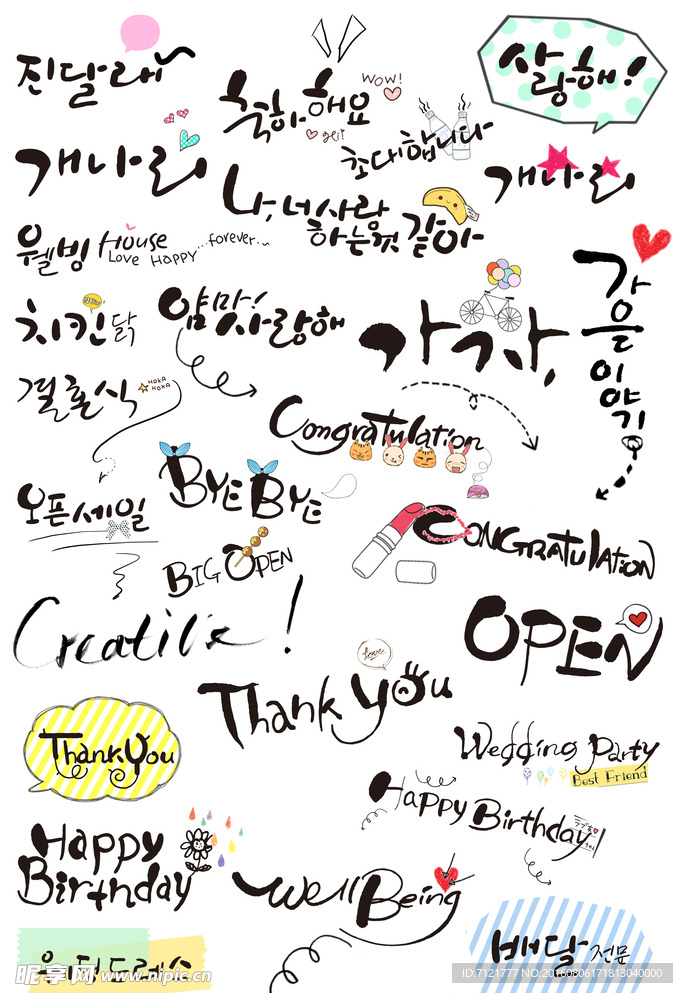 진달래
축하해요
WOW!
gei
사랑해!
초대합니다
개나리
개나리
나,너사랑
하는것 같아
웰빙 House
Love Happy ...forever...
가을이야기
치킨 닭
얌마!사랑해
가자,
결혼식
HOKA
HOKA
Congratulation
BYE BYE
오픈세일
BIG OPEN
CONGRATULATION
Creative!
OPEN
love
Thank you
Thank You
Wedding Party
Best Friend
Happy Birthday
Happy
Birthday
Well Being
웨딩드레스
배달 전문
昵享网 www.nipic.cn
ID:7121777 NO:20160806171813040000